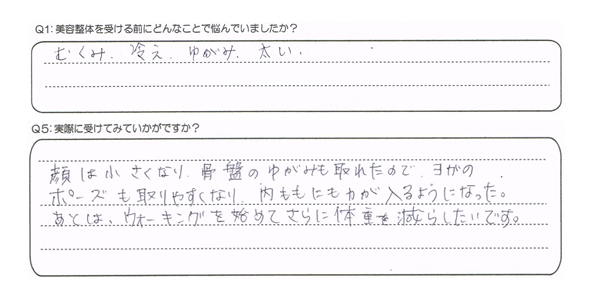 Q1:美容整体を受ける前にどんなことで悩んでいましたか?
むくみ、冷え、ゆがみ、太い、
Q5:実際に受けてみていかがですか?
顔は小さくなり、骨盤のゆがみも取れたので、ヨガの
ポーズも取りやすくなり、内ももにも力が入るようになった。
あとは、ウォーキングを始めてさらに体重を減らしたいです。